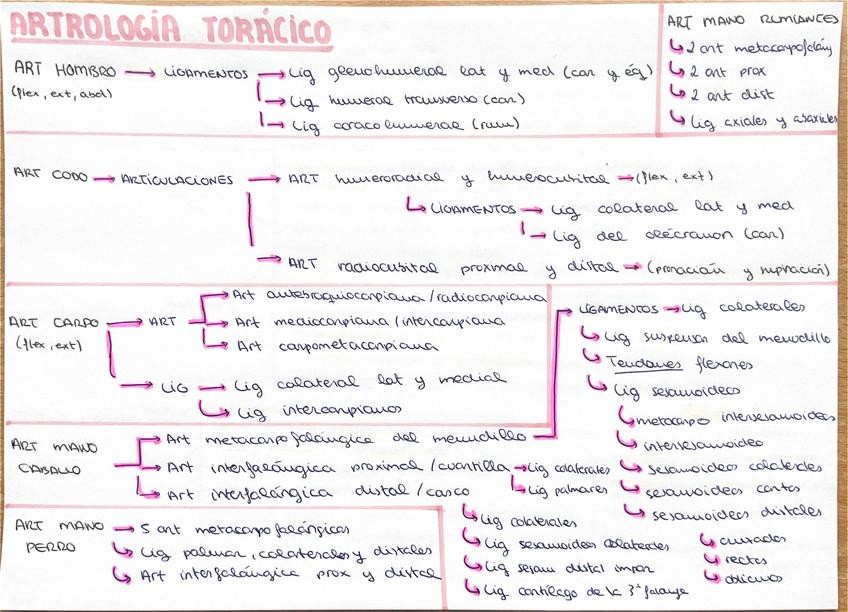 ARTROLOGÍA TORÁCICO
ART HOMBRO → LIGAMENTOS → Lig glenohumeral lat y med (car y éq)
(flex, ext, abd)
Lig humeral transverso (car)
Lig coracohumeral (rum)
ART MANO RUMIANTES
2 art metacarpofaláng
2 art prox
2 art dist
Lig axiales y abaxiales
ART CODO → ARTICULACIONES → ART humeroradial y humerocubital → (flex, ext)
LIGAMENTOS → Lig colateral lat y med
Lig del olécranon (car)
ART radiocubital proximal y distal → (pronación y supinación)
ART CARPO → ART → Art antebraquiocarpiana/radiocarpiana
(flex, ext)
Art mediocarpiana/intercarpiana
Art carpometacarpiana
LIG → Lig colateral lat y medial
Lig intercarpianos
ART MANO CABALLO
Art metacarpofalángica del menudillo
Art interfalángica proximal/cuartilla → Lig colaterales
Lig palmares
Art interfalángica distal/casco
Lig colaterales
Lig sesamoideos colaterales
Lig sesam distal impar
Lig cartílago de la 3ª falange
LIGAMENTOS → Lig colaterales
Lig suspensor del menudillo
Tendones flexores
Lig sesamoideos
metacarpo intersesamoideos
intersesamoideo
sesamoideos colaterales
sesamoideos cortos
sesamoideos distales
cruzados
rectos
oblicuos
ART MANO PERRO
5 art metacarpofalángicas
Lig palmar, colaterales y distales
Art interfalángica prox y distal